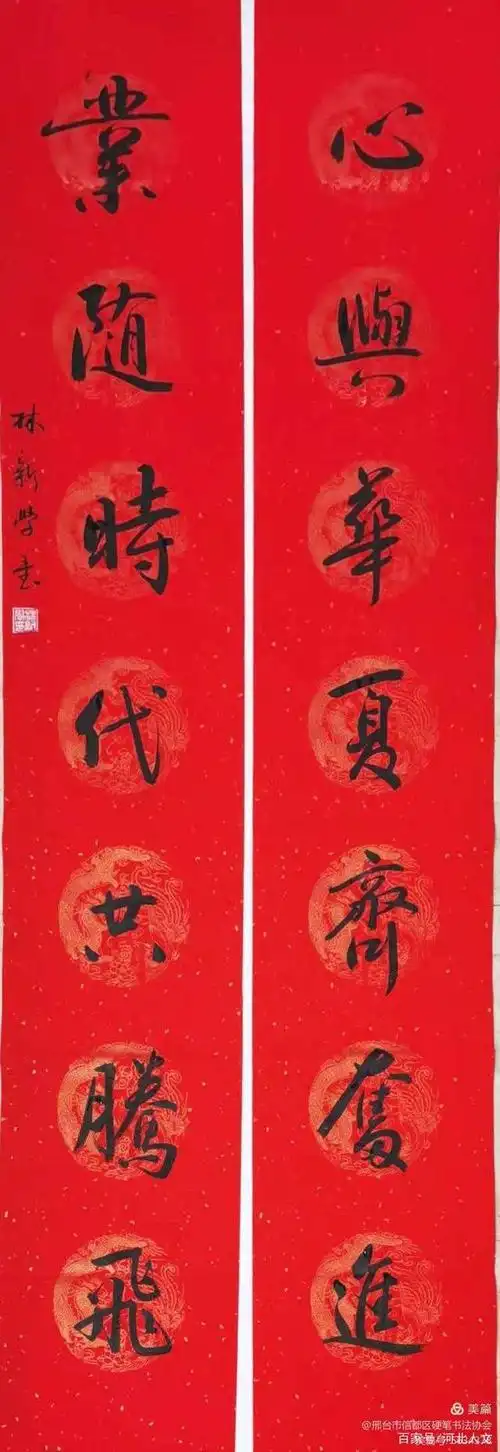 心與華夏齊奮進
業随時代共騰飛
林新學书
美篇
@邢台市信都区硬笔书法协会
百家号/河北人文